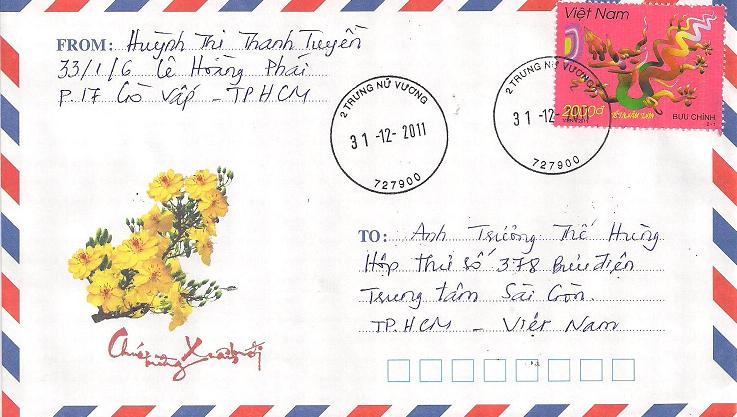 FROM: Huỳnh Thị Thanh Tuyền
33/1/6 Lê Hoàng Phái
P.17 Gò Vấp - TPHCM
2 TRƯNG NỮ VƯƠNG
31-12-2011
727900
2 TRƯNG NỮ VƯƠNG
31-12-2011
727900
Việt Nam
2000đ
BƯU CHÍNH
2-1
TO: Anh Trương Thế Hùng
Hộp thư số 378 Bưu điện
Trung tâm Sài Gòn.
TP.HCM - Việt Nam
Chúc mừng Xuân mới